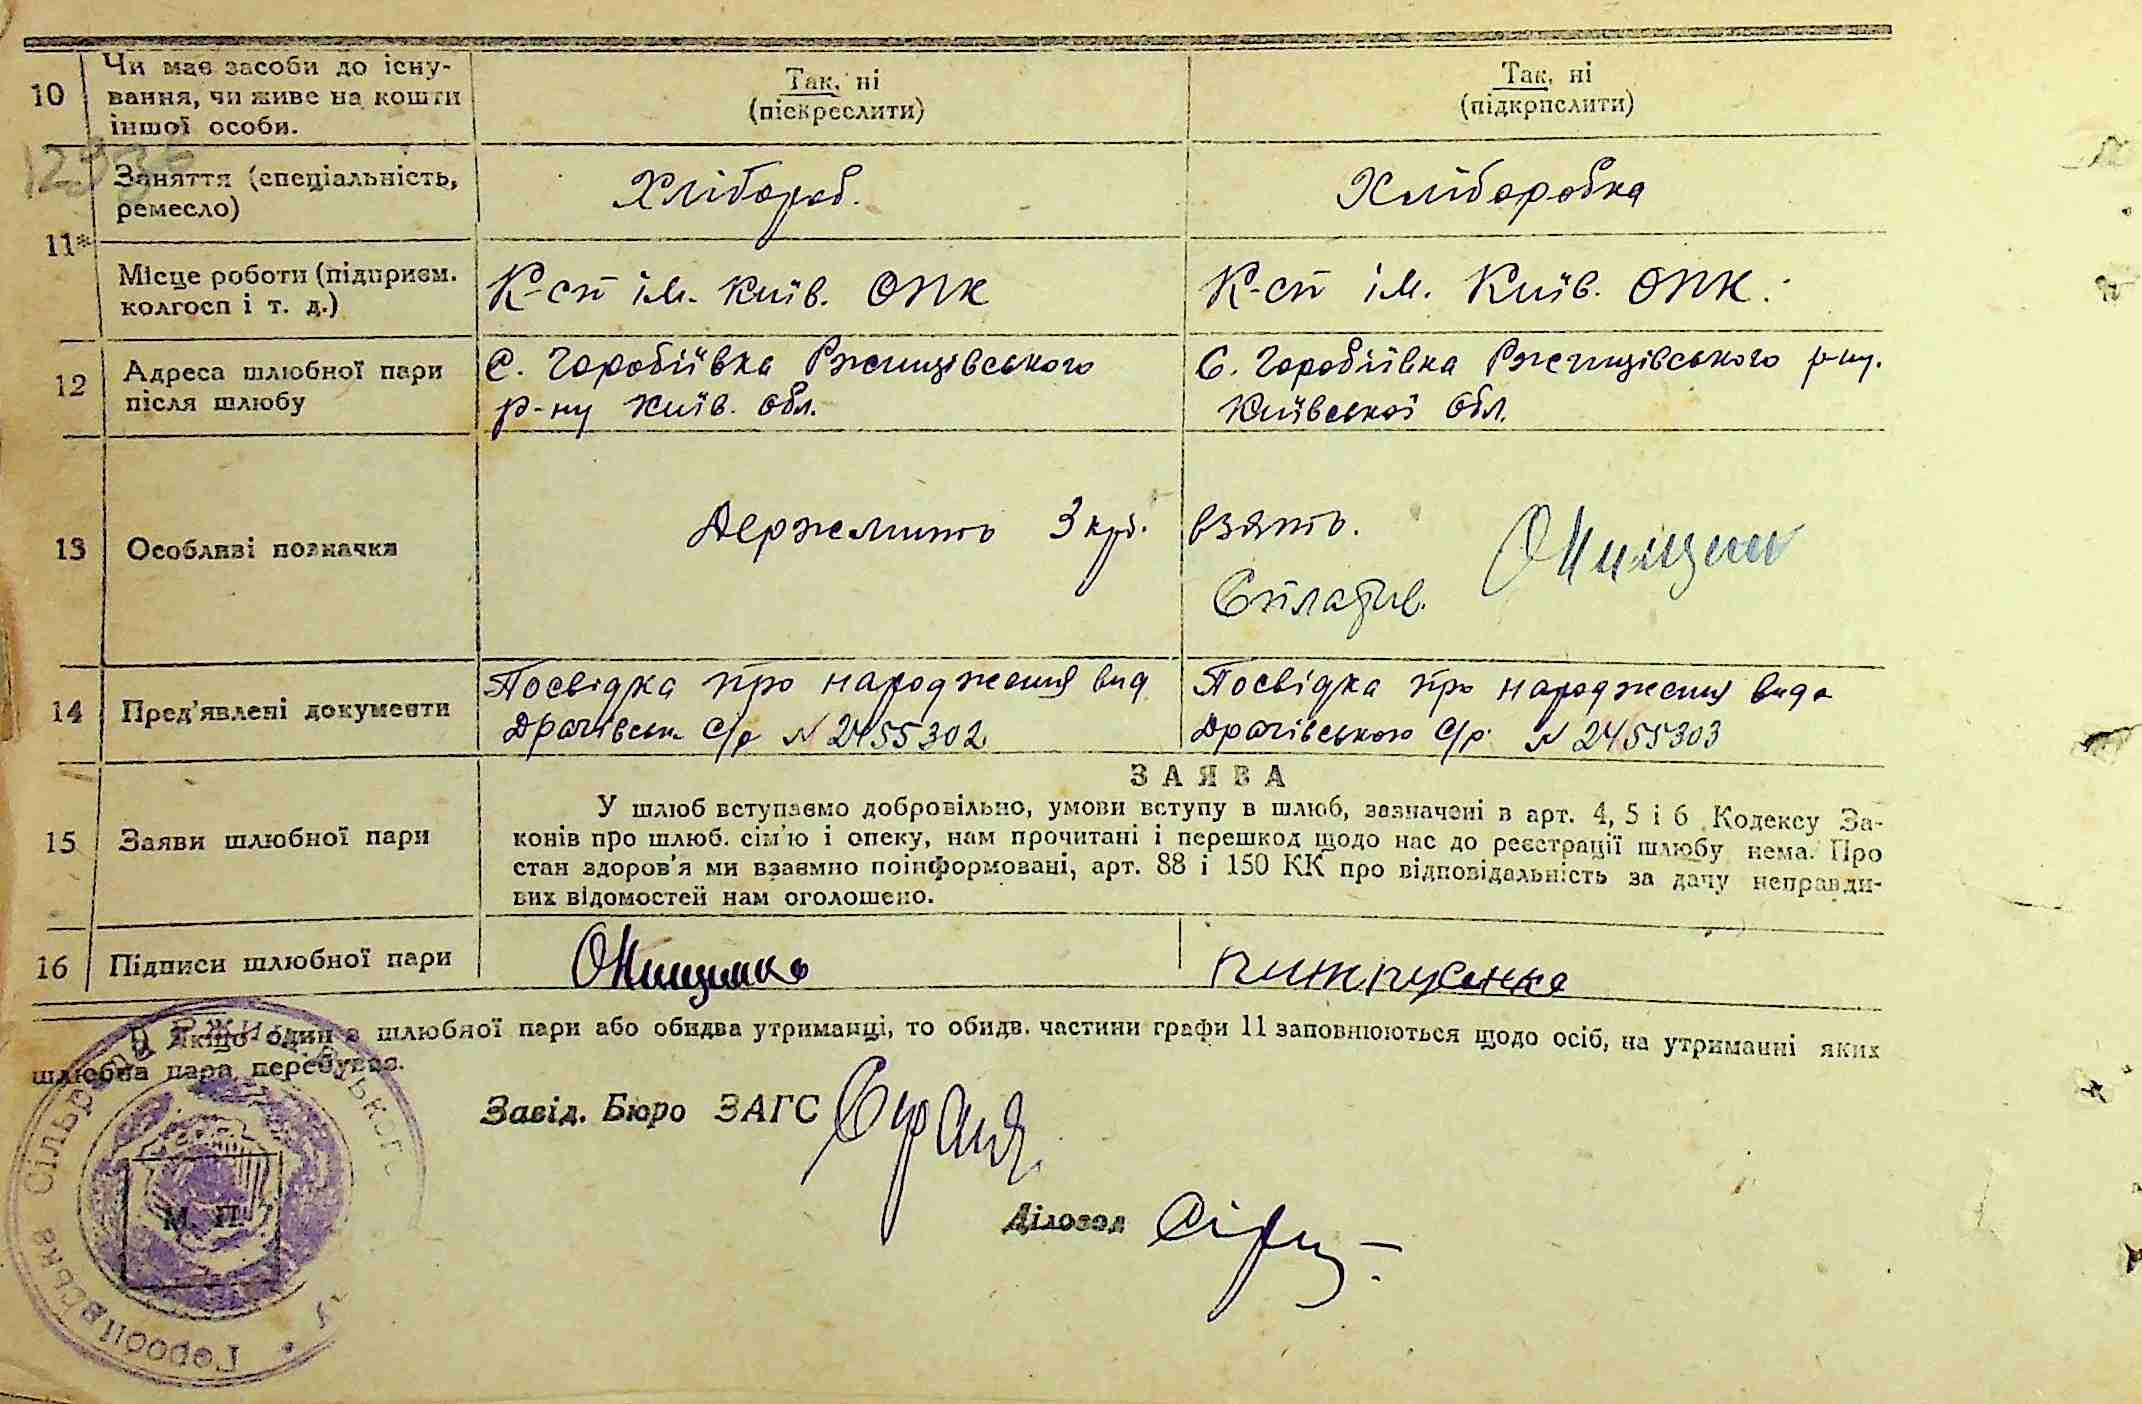 10
Чи має засоби до існу-
вання, чи живе на кошти
іншої особи.
Так, ні
(піскреслити)
Так, ні
(підкрпслити)
1293
11*
Заняття (спеціальність,
ремесло)
Хлібороб.
Хліборобка
Місце роботи (підприєм.
колгосп і т. д.)
К-сп ім. Київ. ОПК
К-сп ім. Київ. ОПК.
12
Адреса шлюбної пари
після шлюбу
С. Горобіївка Ржищівського
р-ну Київ. обл.
С. Горобіївка Ржищівського р-ну.
Київської обл.
13
Особливі позначки
Держмито 3 крб. взято.
Сплатив. Онищен
14
Пред'явлені документи
Посвідка про народження вид
Драчівськ. С/р N 2455302
Посвідка про народження вида
Драчівською С/р. N 2455303
15
Заяви шлюбної пари
ЗАЯВА
У шлюб вступаємо добровільно, умови вступу в шлюб, зазначені в арт. 4, 5 і 6 Кодексу За-
конів про шлюб. сім'ю і опеку, нам прочитані і перешкод щодо нас до реєстрації шлюбу нема. Про
стан здоров'я ми взаємно поінформовані, арт. 88 і 150 КК про відповідальність за дачу неправди-
вих відомостей нам оголошено.
16
Підписи шлюбної пари
Онищенко
*) Якщо один з шлюбної пари або обидва утриманці, то обидв. частини графи 11 заповнюються щодо осіб, на утриманні яких
шлюбна пара перебуває.
Завід. Бюро ЗАГС
Діловод
М. П.
Сільрада Ржищівського